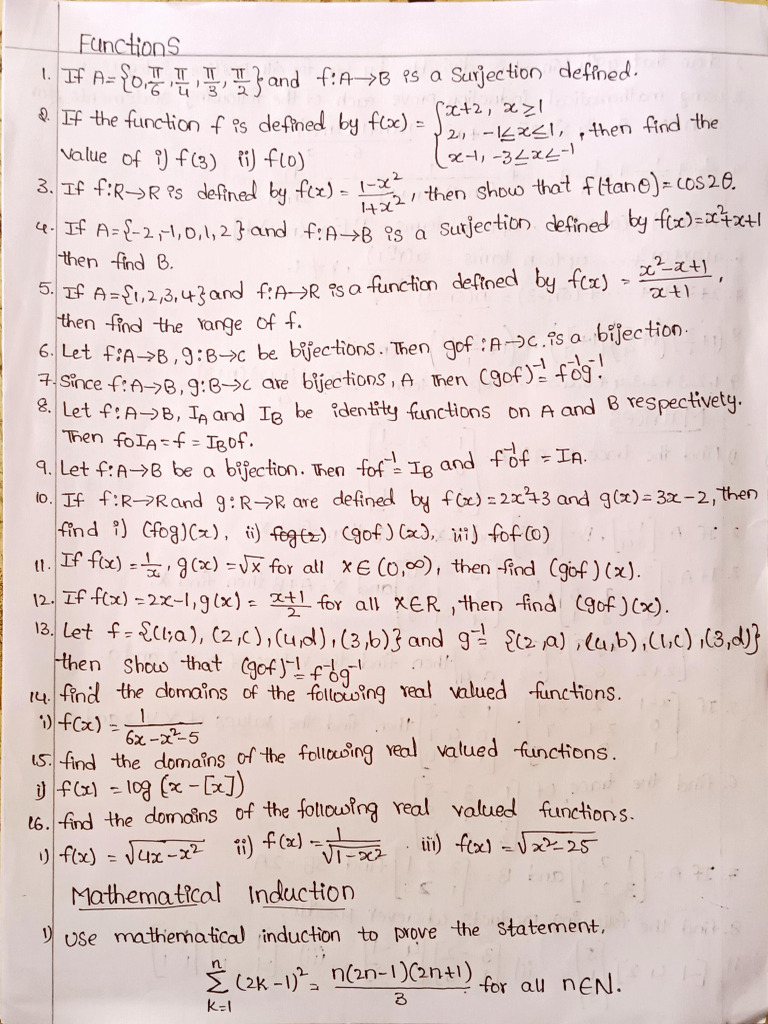 Functions
1. If A={0, π/6, π/4, π/3, π/2} and f:A→B is a Surjection defined.
2. If the function f is defined by f(x) = {x+2, x≥1
2, -1≤x≤1, , then find the
x-1, -3<x<-1
value of i) f(3) ii) f(0)
3. If f:R→R is defined by f(x) = (1-x²)/(1+x²), then show that f(tanθ)=cos2θ.
4. If A={-2,-1,0,1,2} and f:A→B is a surjection defined by f(x)=x²+x+1
then find B.
5. If A={1,2,3,4} and f:A→R is a function defined by f(x) = (x²-x+1)/(x+1),
then find the range of f.
6. Let f:A→B, g:B→C be bijections. Then gof:A→C. is a bijection.
7. Since f:A→B, g:B→C are bijections, A Then (gof)⁻¹= f⁻¹og⁻¹.
8. Let f:A→B, I_A and I_B be identity functions on A and B respectivety.
Then foI_A=f=I_Bof.
9. Let f:A→B be a bijection. Then fof⁻¹=I_B and f⁻¹of = I_A.
10. If f:R→R and g:R→R are defined by f(x)=2x²+3 and g(x)=3x-2, then
find i) (fog)(x), ii) fog(2) (gof)(x), iii) fof(0)
11. If f(x)=1/x, g(x)=√x for all x∈(0,∞), then find (gof)(x).
12. If f(x)=2x-1, g(x) = (x+1)/2 for all x∈R, then find (gof)(x).
13. Let f={(1,a), (2,c), (4,d), (3,b)} and g⁻¹= {(2,a), (4,b), (1,c), (3,d)}
then show that (gof)⁻¹=f⁻¹og⁻¹
14. find the domains of the following real valued functions.
i) f(x) = 1/(6x-x²-5)
15. find the domains of the following real valued functions.
i) f(x) = log (x-[x])
16. find the domains of the following real valued functions.
i) f(x) = √(4x-x²) ii) f(x) = 1/√(1-x²) . iii) f(x) = √(x²-25)
Mathematical Induction
1) Use mathematical induction to prove the statement,
n∑k=1 (2k-1)² = n(2n-1)(2n+1)/3 for all n∈N.